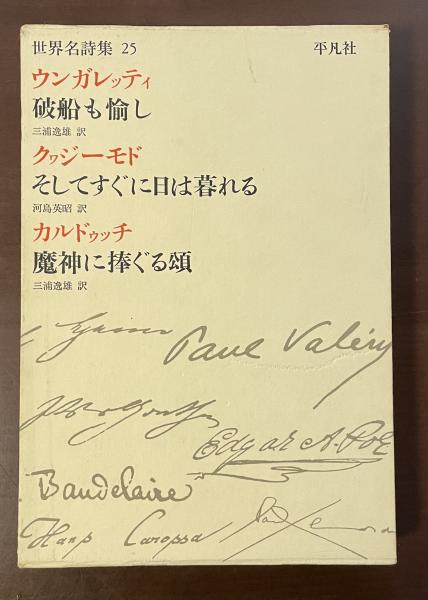 世界名詩集 25 平凡社
ウンガレッティ
破船も愉し
三浦逸雄 訳
クヮジーモド
そしてすぐに日は暮れる
河島英昭 訳
カルドゥッチ
魔神に捧ぐる頌
三浦逸雄 訳
Paul Valéry
Edgar A. Poe
Baudelaire
Hans Carossa